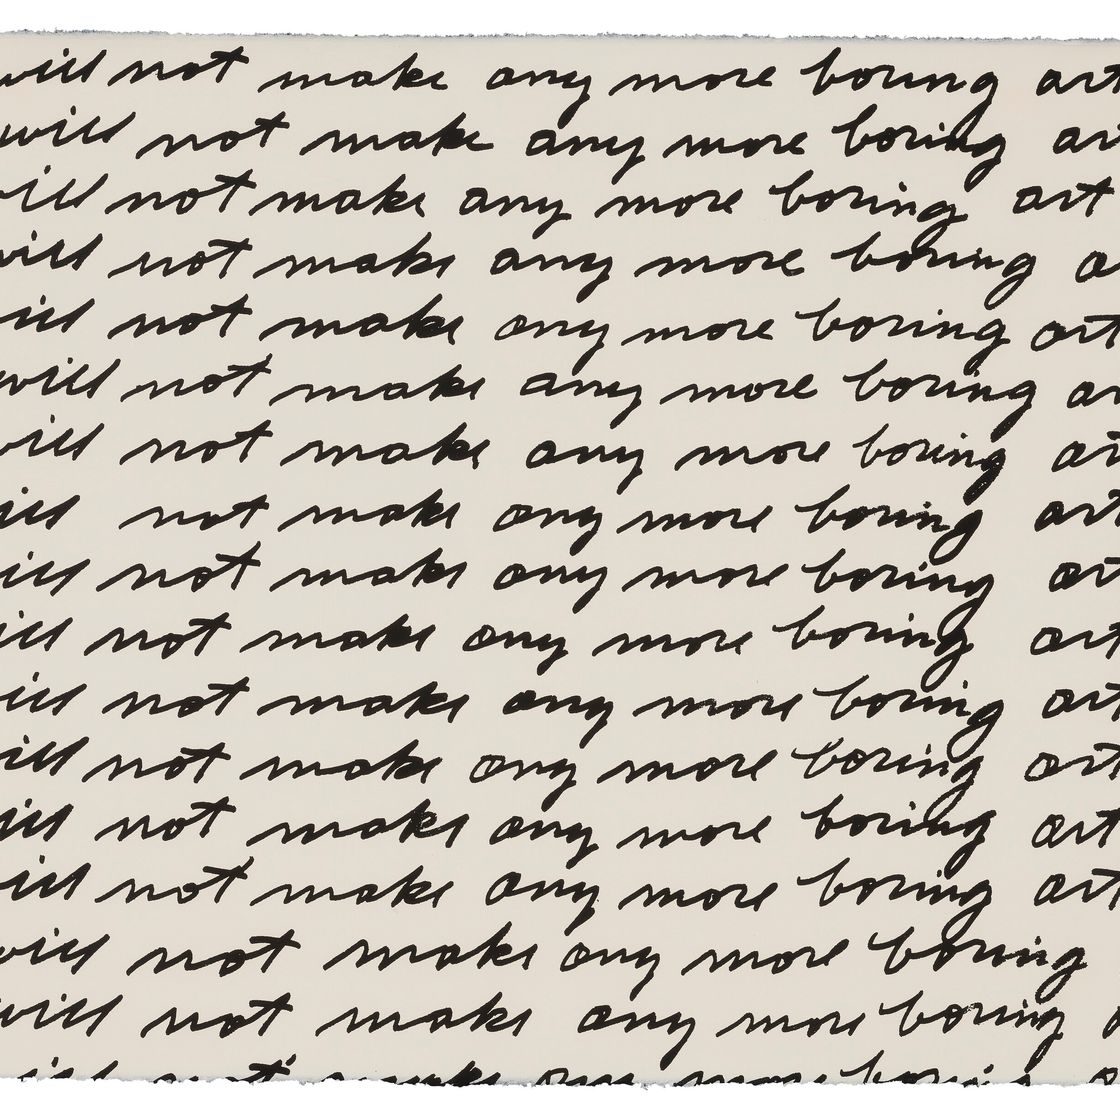 will not make any more boring art
will not make any more boring ar
will not make any more boring art
will not make any more boring a
ill not make any more boring art
will not make any more boring ar
will not make any more boring art
ill not make any more boring art
ill not make any more boring art
ill not make any more boring art
ill not make any more boring art
ill not make any more boring art
ill not make any more boring art
ill not make any more boring art
will not make any more boring
will not make any more boring
ill not make any more boring